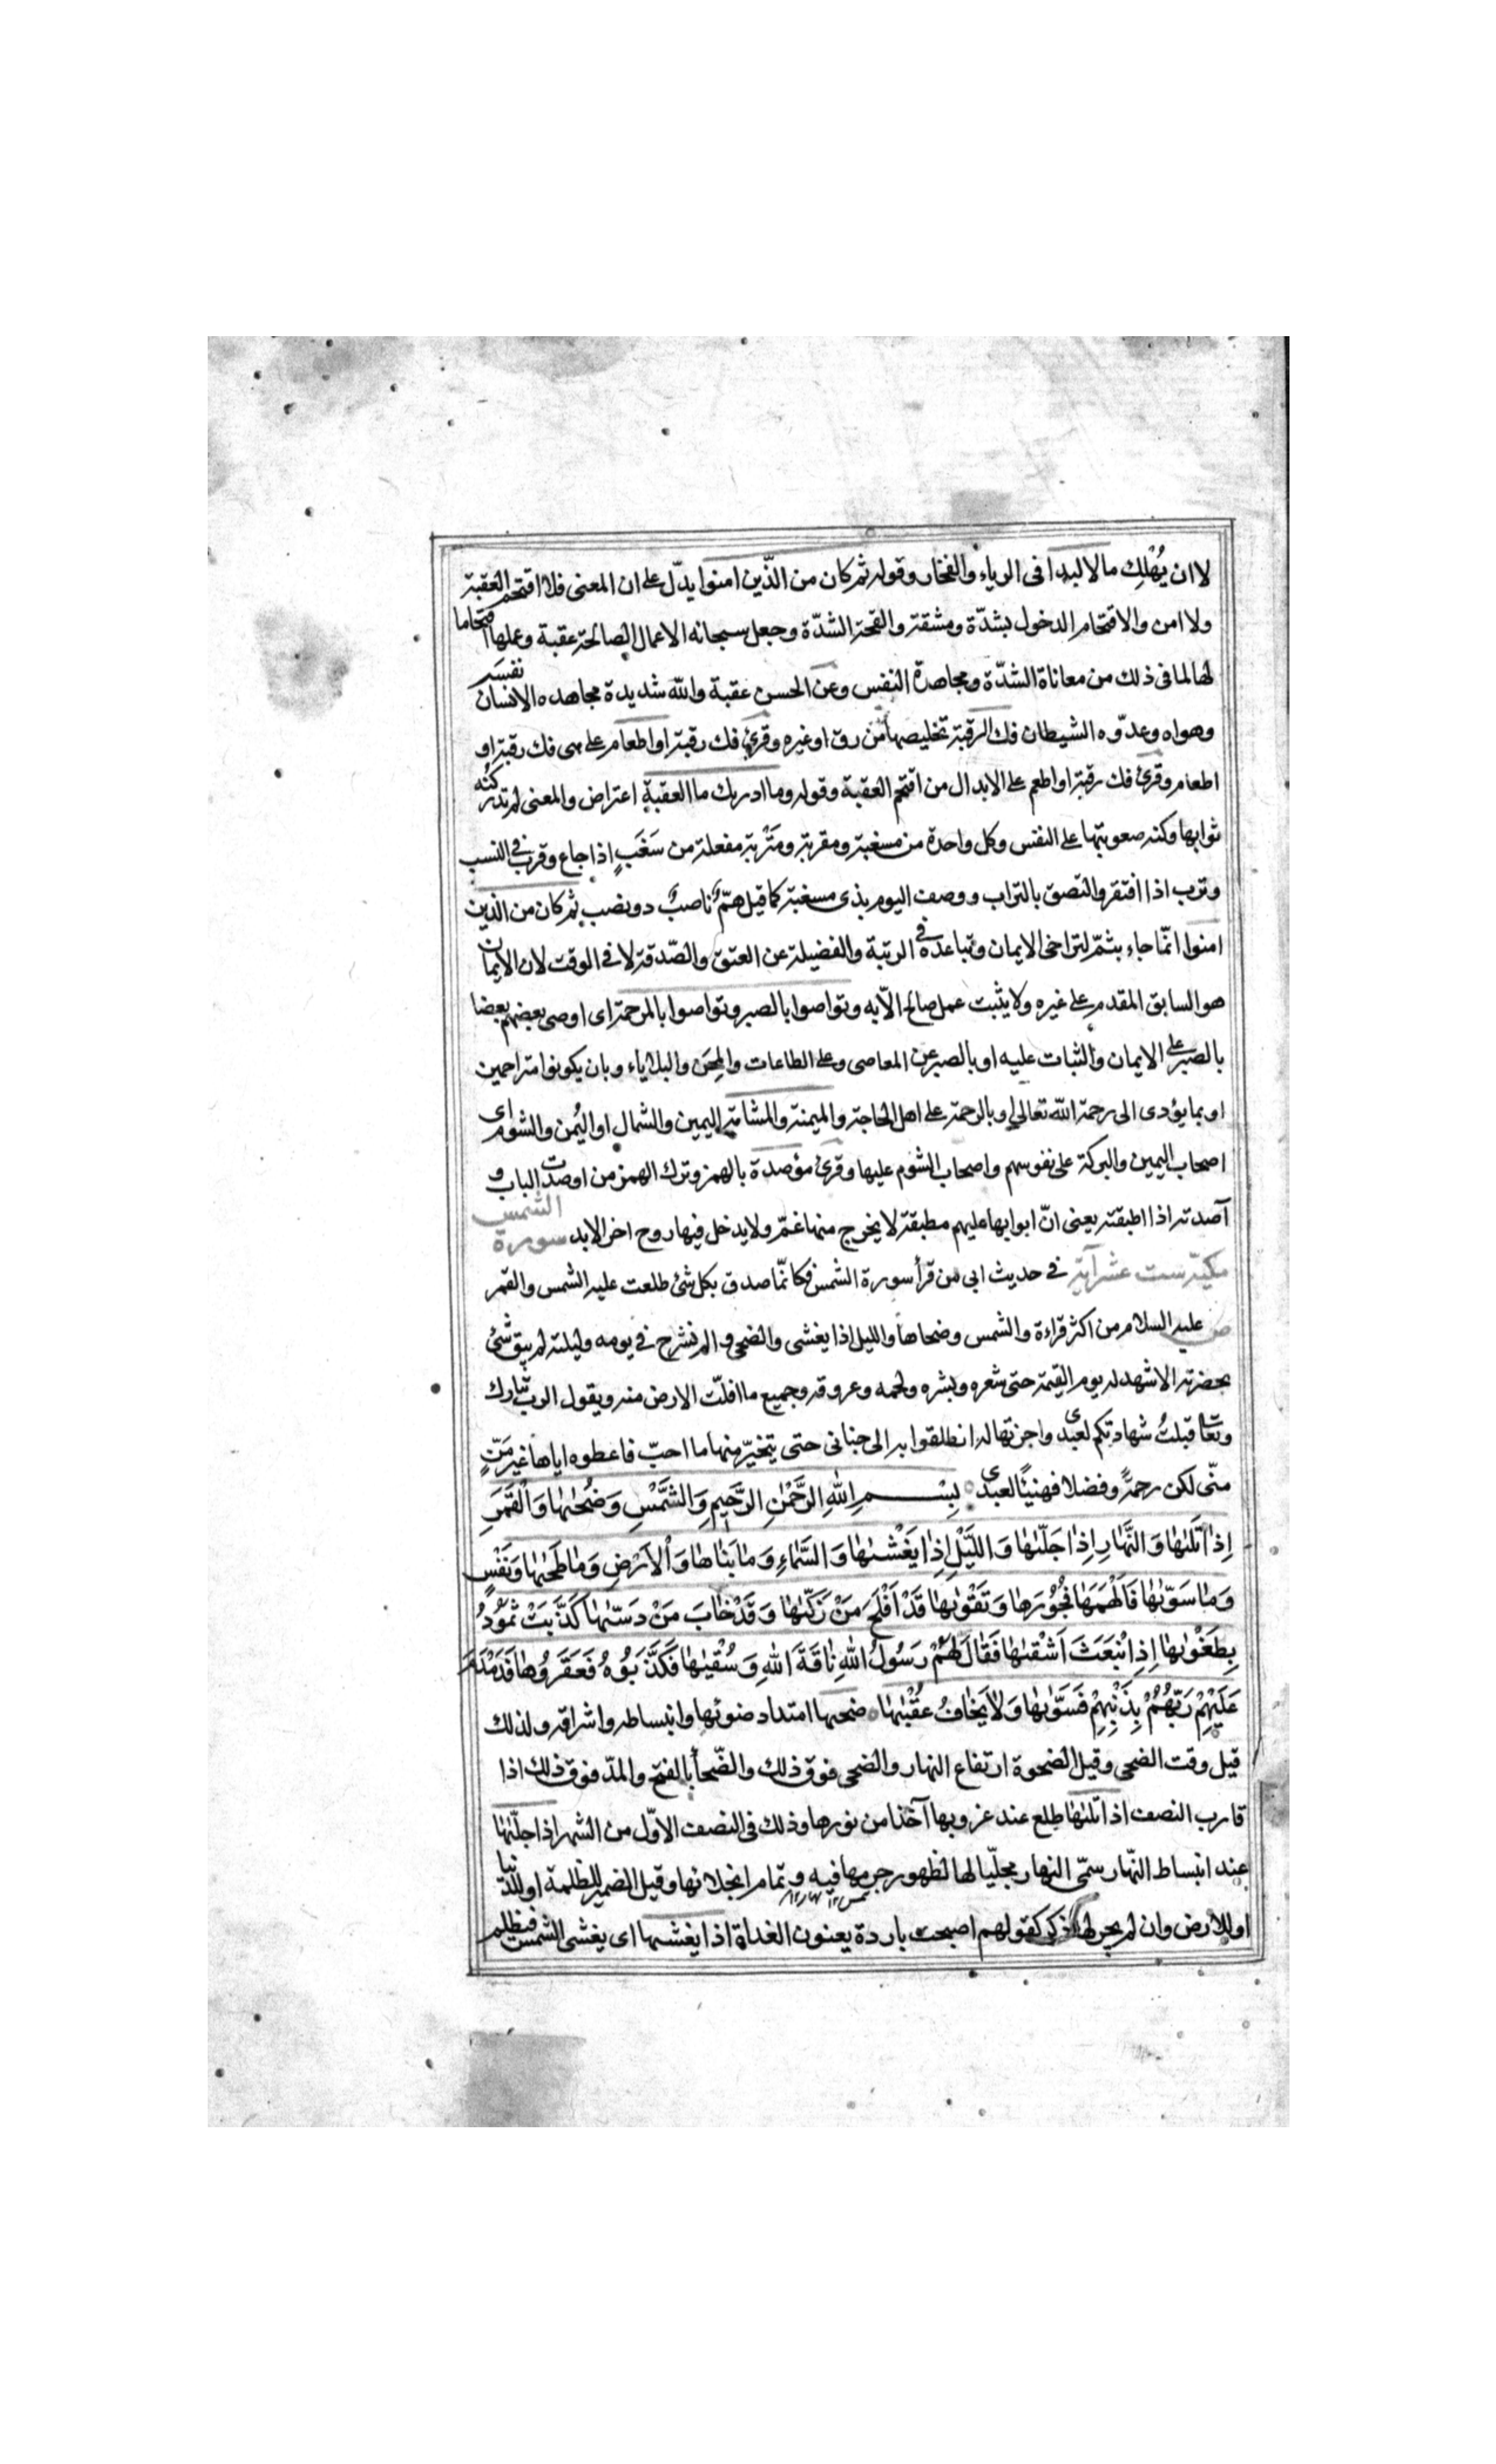 لا ان يُهْلِك مالا لبدا فى الرياء والفخار وقوله ثم كان من الّذين امنوا يدلّ على ان المعنى فلا اقتحم العقبة
ولا امن والاقتحام الدخول بشدّة ومشقة والقحمة الشدّة وجعل سبحانه الاعمال الصالحة عقبة وعملها اقتحاما
لها لما فى ذلك من معاناة الشدّة ومجاهدة النفس وعن الحسن عقبة والله شديدة مجاهده الانسان نفسه
وهواه وعدّوه الشيطان فك الرقبة تخليصها من رق او غيره وقرئ فك رقبة او اطعام على هى فك رقبة او
اطعام وقرئ فك رقبة او اطعم على الابدال من اقتحم العقبة وقوله وما ادريك ما العقبة اعتراض والمعنى لم تدر كنه
ثوابها وكنه صعوبتها على النفس وكل واحدة من مسغبة ومقربة ومَتْربة مفعلة من سَغَبٍ اذا جاع وقرب فى النسب
وترب اذا افتقر والتصق بالتراب ووصف اليوم بذى مسغبة كما قيل همّ ناصبٌ ذو نصب ثم كان من الذين
امنوا انّما جاء بثمّ لتراخى الايمان وتباعده فى الرتبة والفضيلة عن العتق والصّدقة لا فى الوقت لان الايمان
هو السابق المقدم على غيره ولا يثبت عمل صالح الّا به وتواصوا بالصبر وتواصوا بالمرحمة اى اوصى بعضهم بعضا
بالصبر على الايمان والثبات عليه او بالصبر عن المعاصى وعلى الطاعات والمِحَن والبلاياء وبان يكونوا متراحمين
او بما يؤدى الى رحمة الله تعالى او بالرحمة على اهل الحاجة والميمنة والمشأمة اليمين والشمال او اليُمن والشوم اى
اصحاب اليمين والبركة على نفوسهم واصحاب الشوم عليها وقرئ مؤصدة بالهمز وترك الهمز من اوصدت الباب و
آصدته اذا اطبقته يعنى انّ ابوابها عليهم مطبقة لا يخرج منها غمّ ولا يدخل فيها روح اخر الابد سورة الشمس
مكيّة ست عشر آية فى حديث ابى من قرأ سورة الشمس فكانّما صدق بكل شئ طلعت عليه الشمس والقمر
ص عليه السلام من اكثر قراءة والشمس وضحاها والليل اذا يغشى والضحى و الم نشرح فى يومه وليلته لم يبق شئ
بحضرته الا شهد له يوم القيمة حتى شعره وبشره ولحمه وعروقه وجميع ما اقلّت الارض منه ويقول الرب تبارك
وتعا قبلتُ شهادتكم لعبدى واجزتها له انطلقوا به الى جنانى حتى يتخيّر منها ما احبّ فاعطوه اياها غير مَنّ
منّى لكن رحمةً وفضلا فهنيئًا لعبدى بِسْمِ اللهِ الرَّحْمٰنِ الرَّحِيمِ وَالشَّمْسِ وَضُحٰىهٰا وَالْقَمَرِ
اِذٰا تَلٰىهٰا وَالنَّهٰارِ اِذٰا جَلّٰىهٰا وَاللَّيْلِ اِذٰا يَغْشٰىهٰا وَالسَّمٰاءِ وَمٰا بَنٰاهٰا وَالْاَرْضِ وَمٰا طَحٰىهٰا وَنَفْسٍ
وَمٰا سَوّٰىهٰا فَاَلْهَمَهٰا فُجُوْرَهٰا وَتَقْوٰىهٰا قَدْ اَفْلَحَ مَنْ زَكّٰىهٰا وَقَدْ خٰابَ مَنْ دَسّٰىهٰا كَذَّبَتْ ثَمُوْدُ
بِطَغْوٰىهٰا اِذِ انْبَعَثَ اَشْقٰىهٰا فَقٰالَ لَهُمْ رَسُوْلُ اللهِ نٰاقَةَ اللهِ وَسُقْيٰهٰا فَكَذَّبُوْهُ فَعَقَرُوهٰا فَدَمْدَمَ
عَلَيْهِمْ رَبُّهُمْ بِذَنْبِهِمْ فَسَوّٰىهٰا وَلاٰ يَخٰافُ عُقْبٰىهٰا ضحىها امتداد ضوئها وانبساطه واشراقه ولذلك
قيل وقت الضحى وقيل الضحوة ارتفاع النهار والضحى فوق ذلك والضّحاء بالفتح والمدّ فوق ذلك اذا
قارب النصف اذا تلٰىهٰا طلع عند غروبها آخذا من نورها وذلك فى النصف الاوّل من الشهر اذا جلّٰىهٰا
عند انبساط النّهار سمّى النهار مجلّيا لها لظهور جرمها فيه و تمام انجلائها وقيل الضمير للظلمة او للدنيا
او للارض وان لم يجر لها ذكر كقولهم اصبحت باردة يعنون الغداة اذا يغشىها اى يغشى الشمس فيظلم